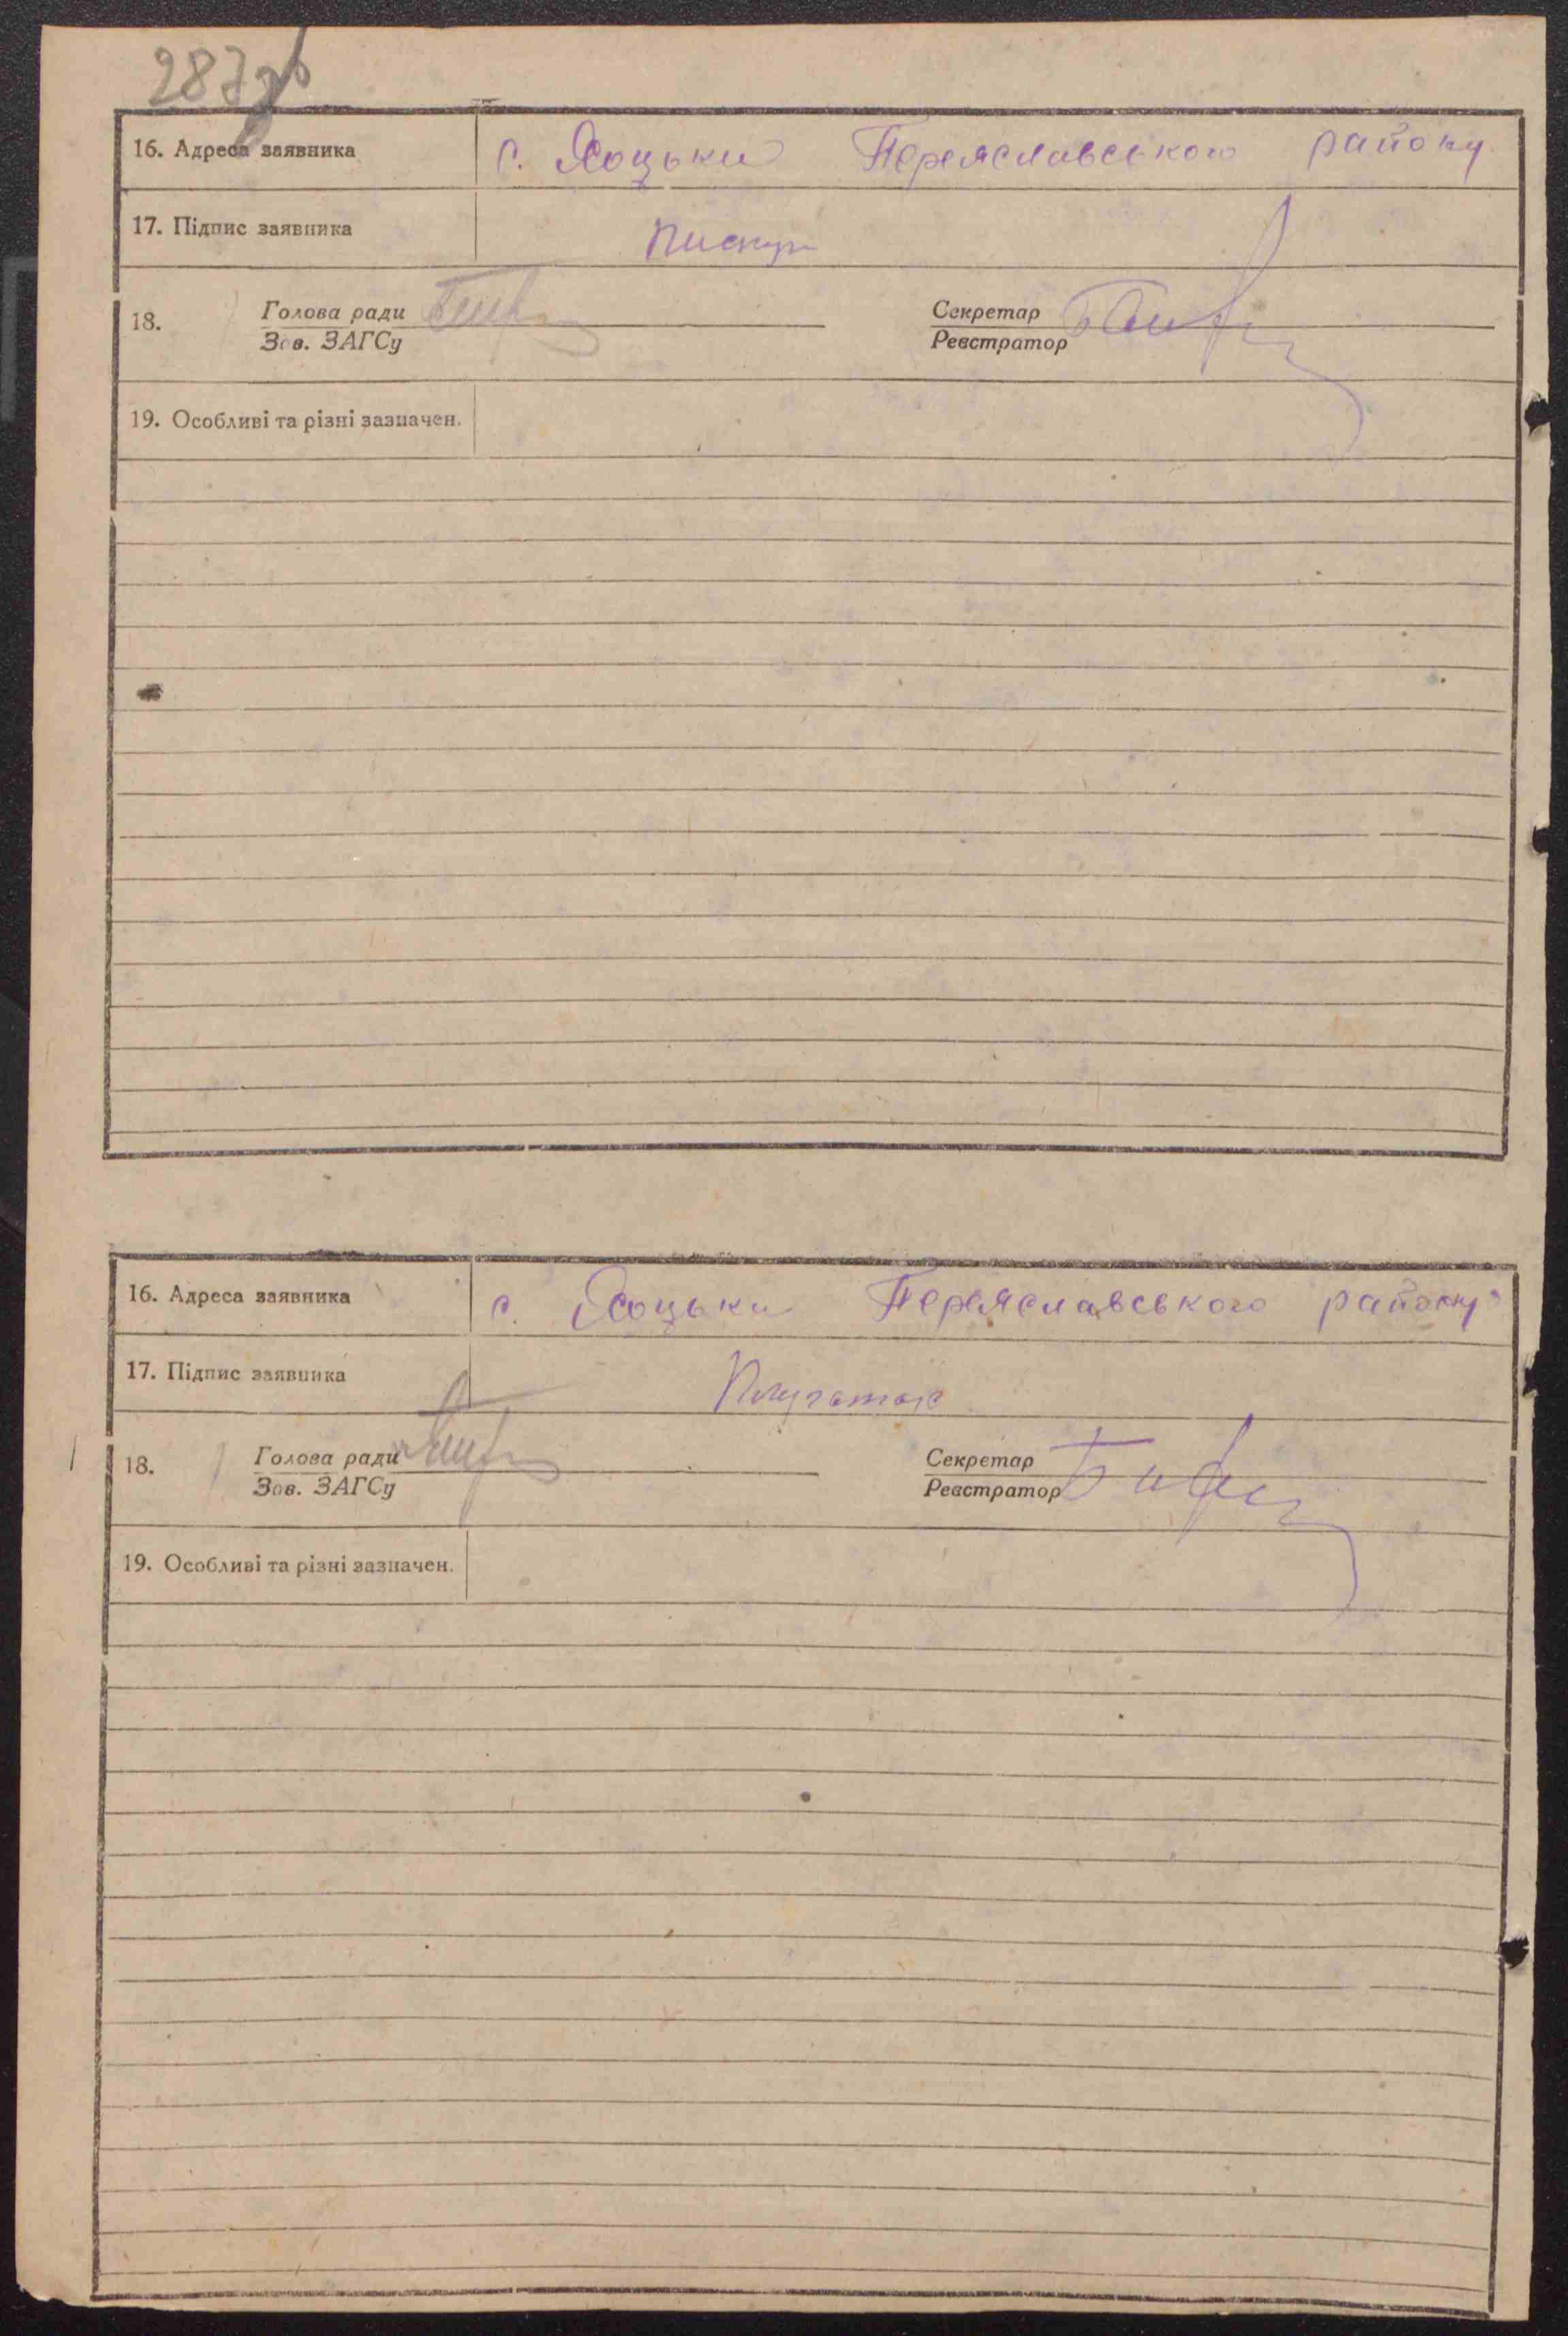 287зв
16. Адреса заявника с. Хоцьки Переяславського району
17. Підпис заявника Пискун
18. Голова ради Секретар
Зав. ЗАГСу Реєстратор
19. Особливі та різні зазначен.
16. Адреса заявника с. Хоцьки Переяславського району
17. Підпис заявника
18. Голова ради Секретар
Зав. ЗАГСу Реєстратор
19. Особливі та різні зазначен.